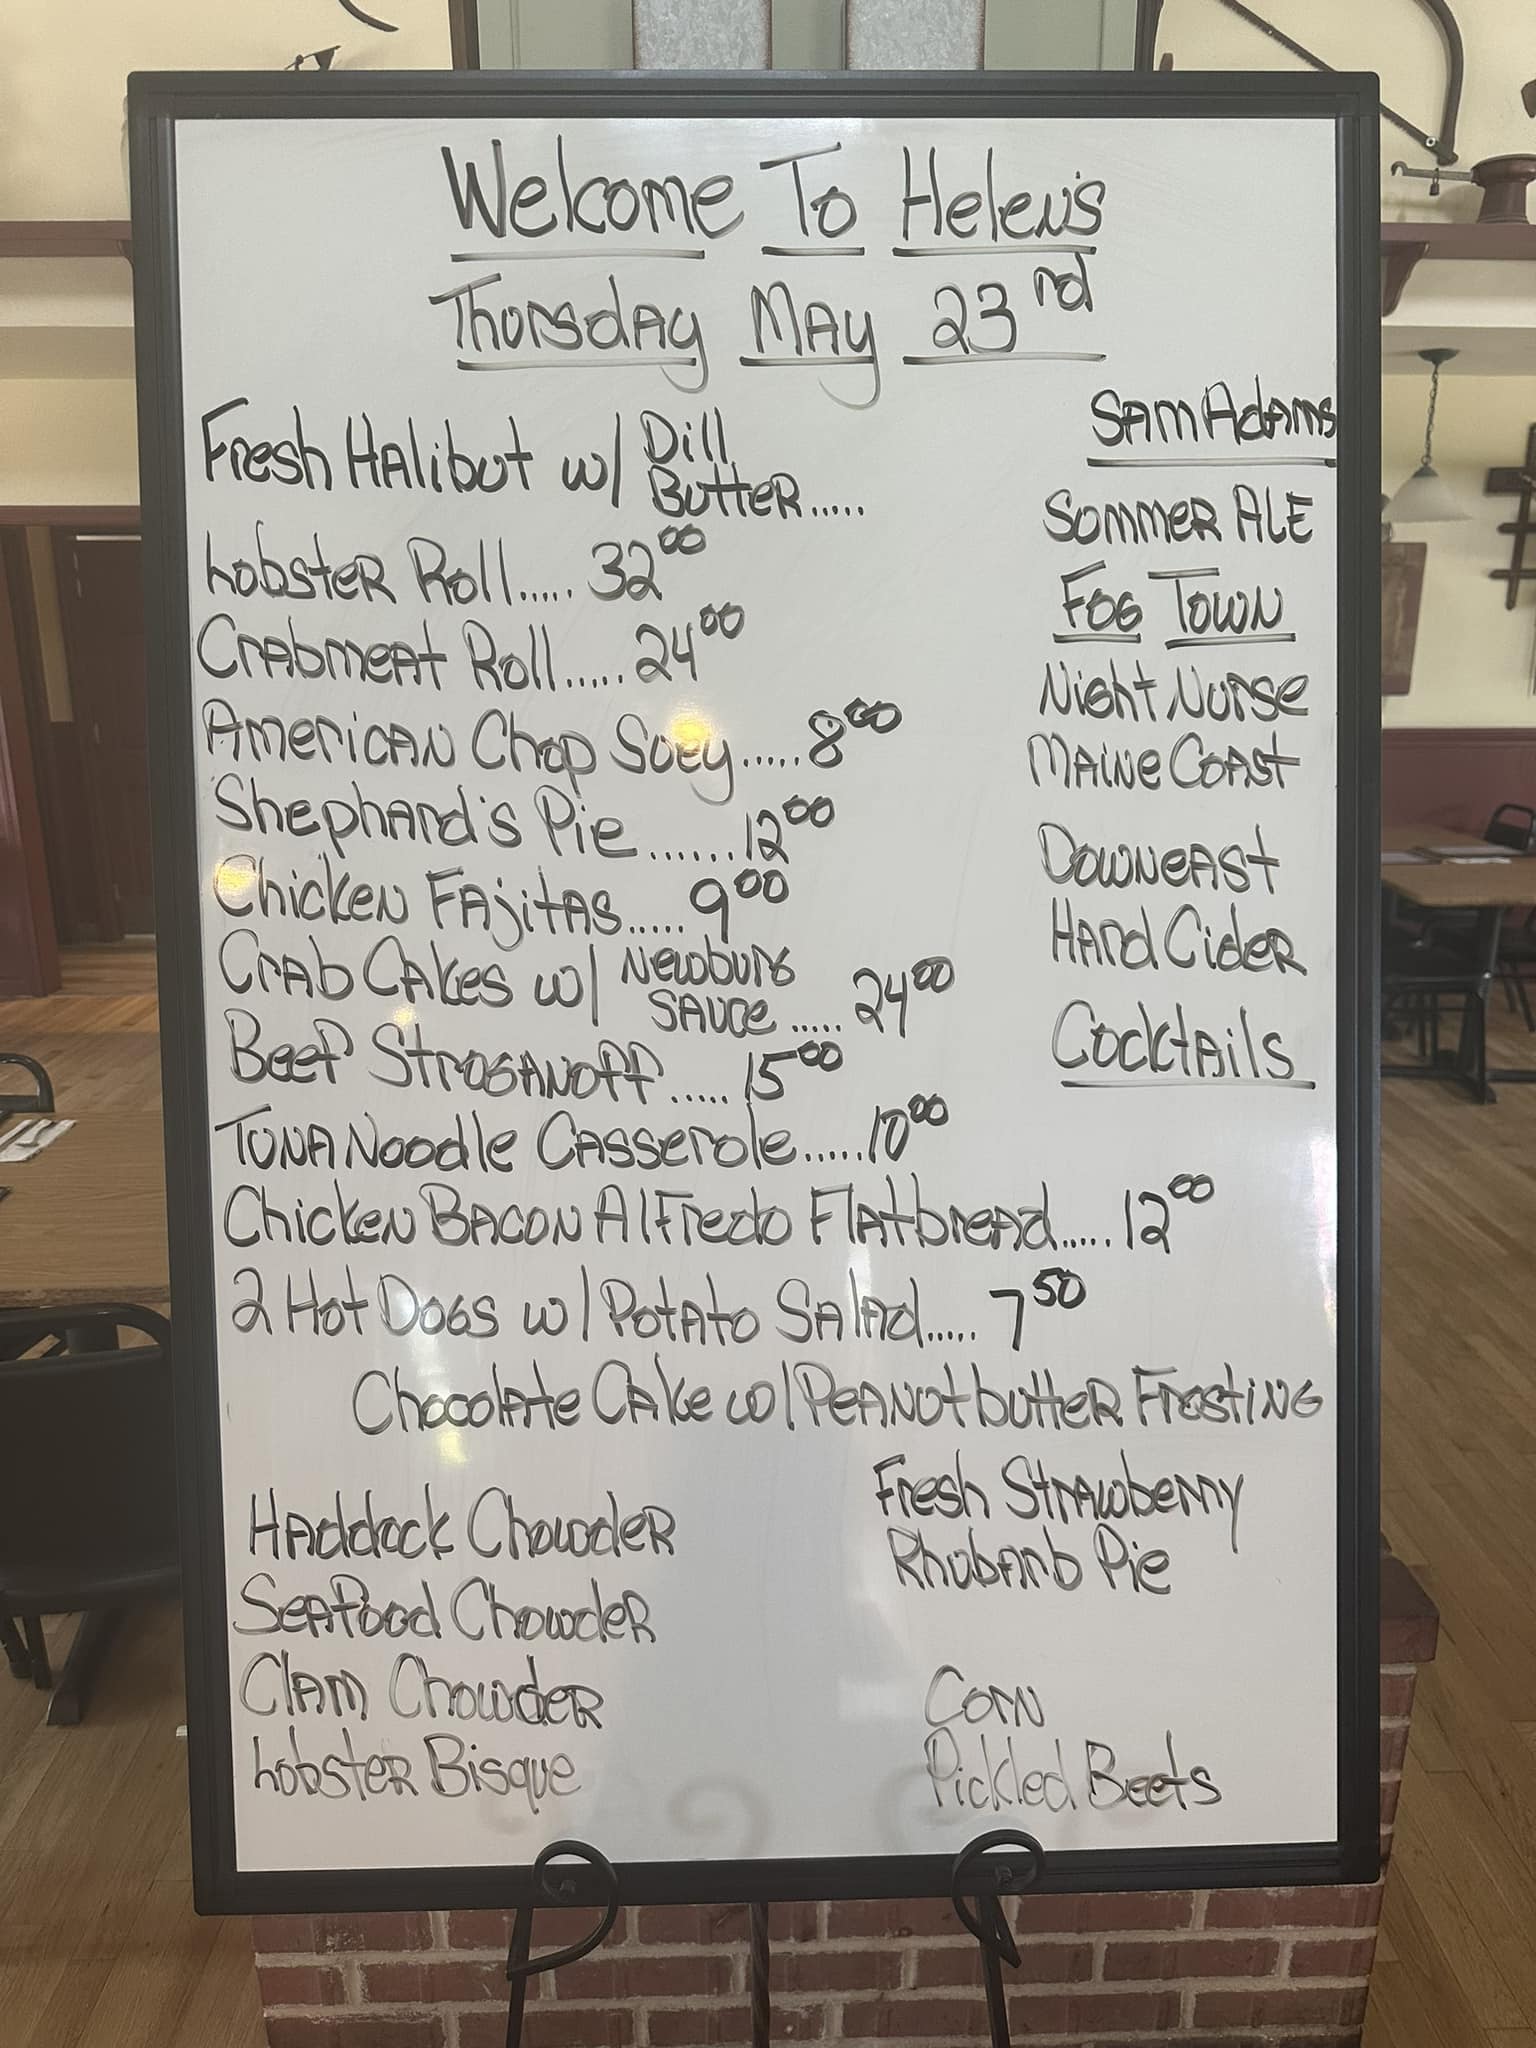 Welcome To Helen's
Thursday May 23rd
Fresh Halibut w/ Dill Butter.....
Lobster Roll..... 32.00
Crabmeat Roll..... 24.00
American Chop Suey..... 8.00
Shephard's Pie ...... 12.00
Chicken Fajitas..... 9.00
Crab Cakes w/ Newburg Sauce ..... 24.00
Beef Stroganoff ..... 15.00
Tuna Noodle Casserole..... 10.00
Chicken Bacon Alfredo Flatbread..... 12.00
2 Hot Dogs w/ Potato Salad..... 7.50
Chocolate Cake w/ Peanutbutter Frosting
Sam Adams
Summer Ale
Fog Town
Night Nurse
Maine Coast
Downeast
Hard Cider
Cocktails
Haddock Chowder
Seafood Chowder
Clam Chowder
Lobster Bisque
Fresh Strawberry
Rhubarb Pie
Corn
Pickled Beets